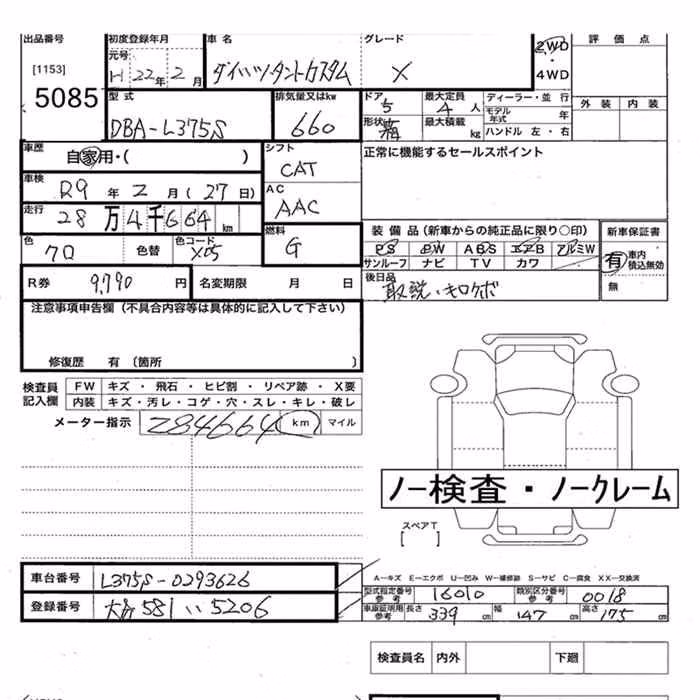 出品番号 初度登録年月 車名 グレード 2WD・4WD 評価点
[1153] 元号 H 22年 2月 ダイハツ・タントカスタム X 外装 内装
5085 型式 DBA-L375S 排気量又はkw 660 ドア 5 形状 箱 最大定員 4人 最大積載 kg ディーラー・並行 モデル年式 年 ハンドル 左・右
車歴 自家用・( ) シフト CAT 正常に機能するセールスポイント
車検 R9年 2月 (27日) AC AAC
走行 28万4千664km 燃料 G 装備品(新車からの純正品に限り○印) 新車保証書
色 クロ 色替 色コード X05 PS PW ABS エアB アルミW 有 車内積込無効
サンルーフ ナビ TV カワ 無
R券 9,790円 名変期限 月 日 後日品 取説・キロクボ
注意事項申告欄(不具合内容等は具体的に記入して下さい)
修復歴 有 (箇所 )
検査員記入欄 FW キズ・飛石・ヒビ割・リペア跡・X要
内装 キズ・汚レ・コゲ・穴・スレ・キレ・破レ
メーター指示 284664 km マイル
ノー検査・ノークレーム
スペアT
[ ]
A-キズ E-エクボ U-凹み W-補修跡 S-サビ C-腐食 XX-交換済
車台番号 L375S-0293626 型式指定番号 参考 16010 類別区分番号 参考 0018
登録番号 581 5206 車庫証明用 参考 長さ 339cm 幅 147cm 高さ 175cm
検査員名 内外 下廻